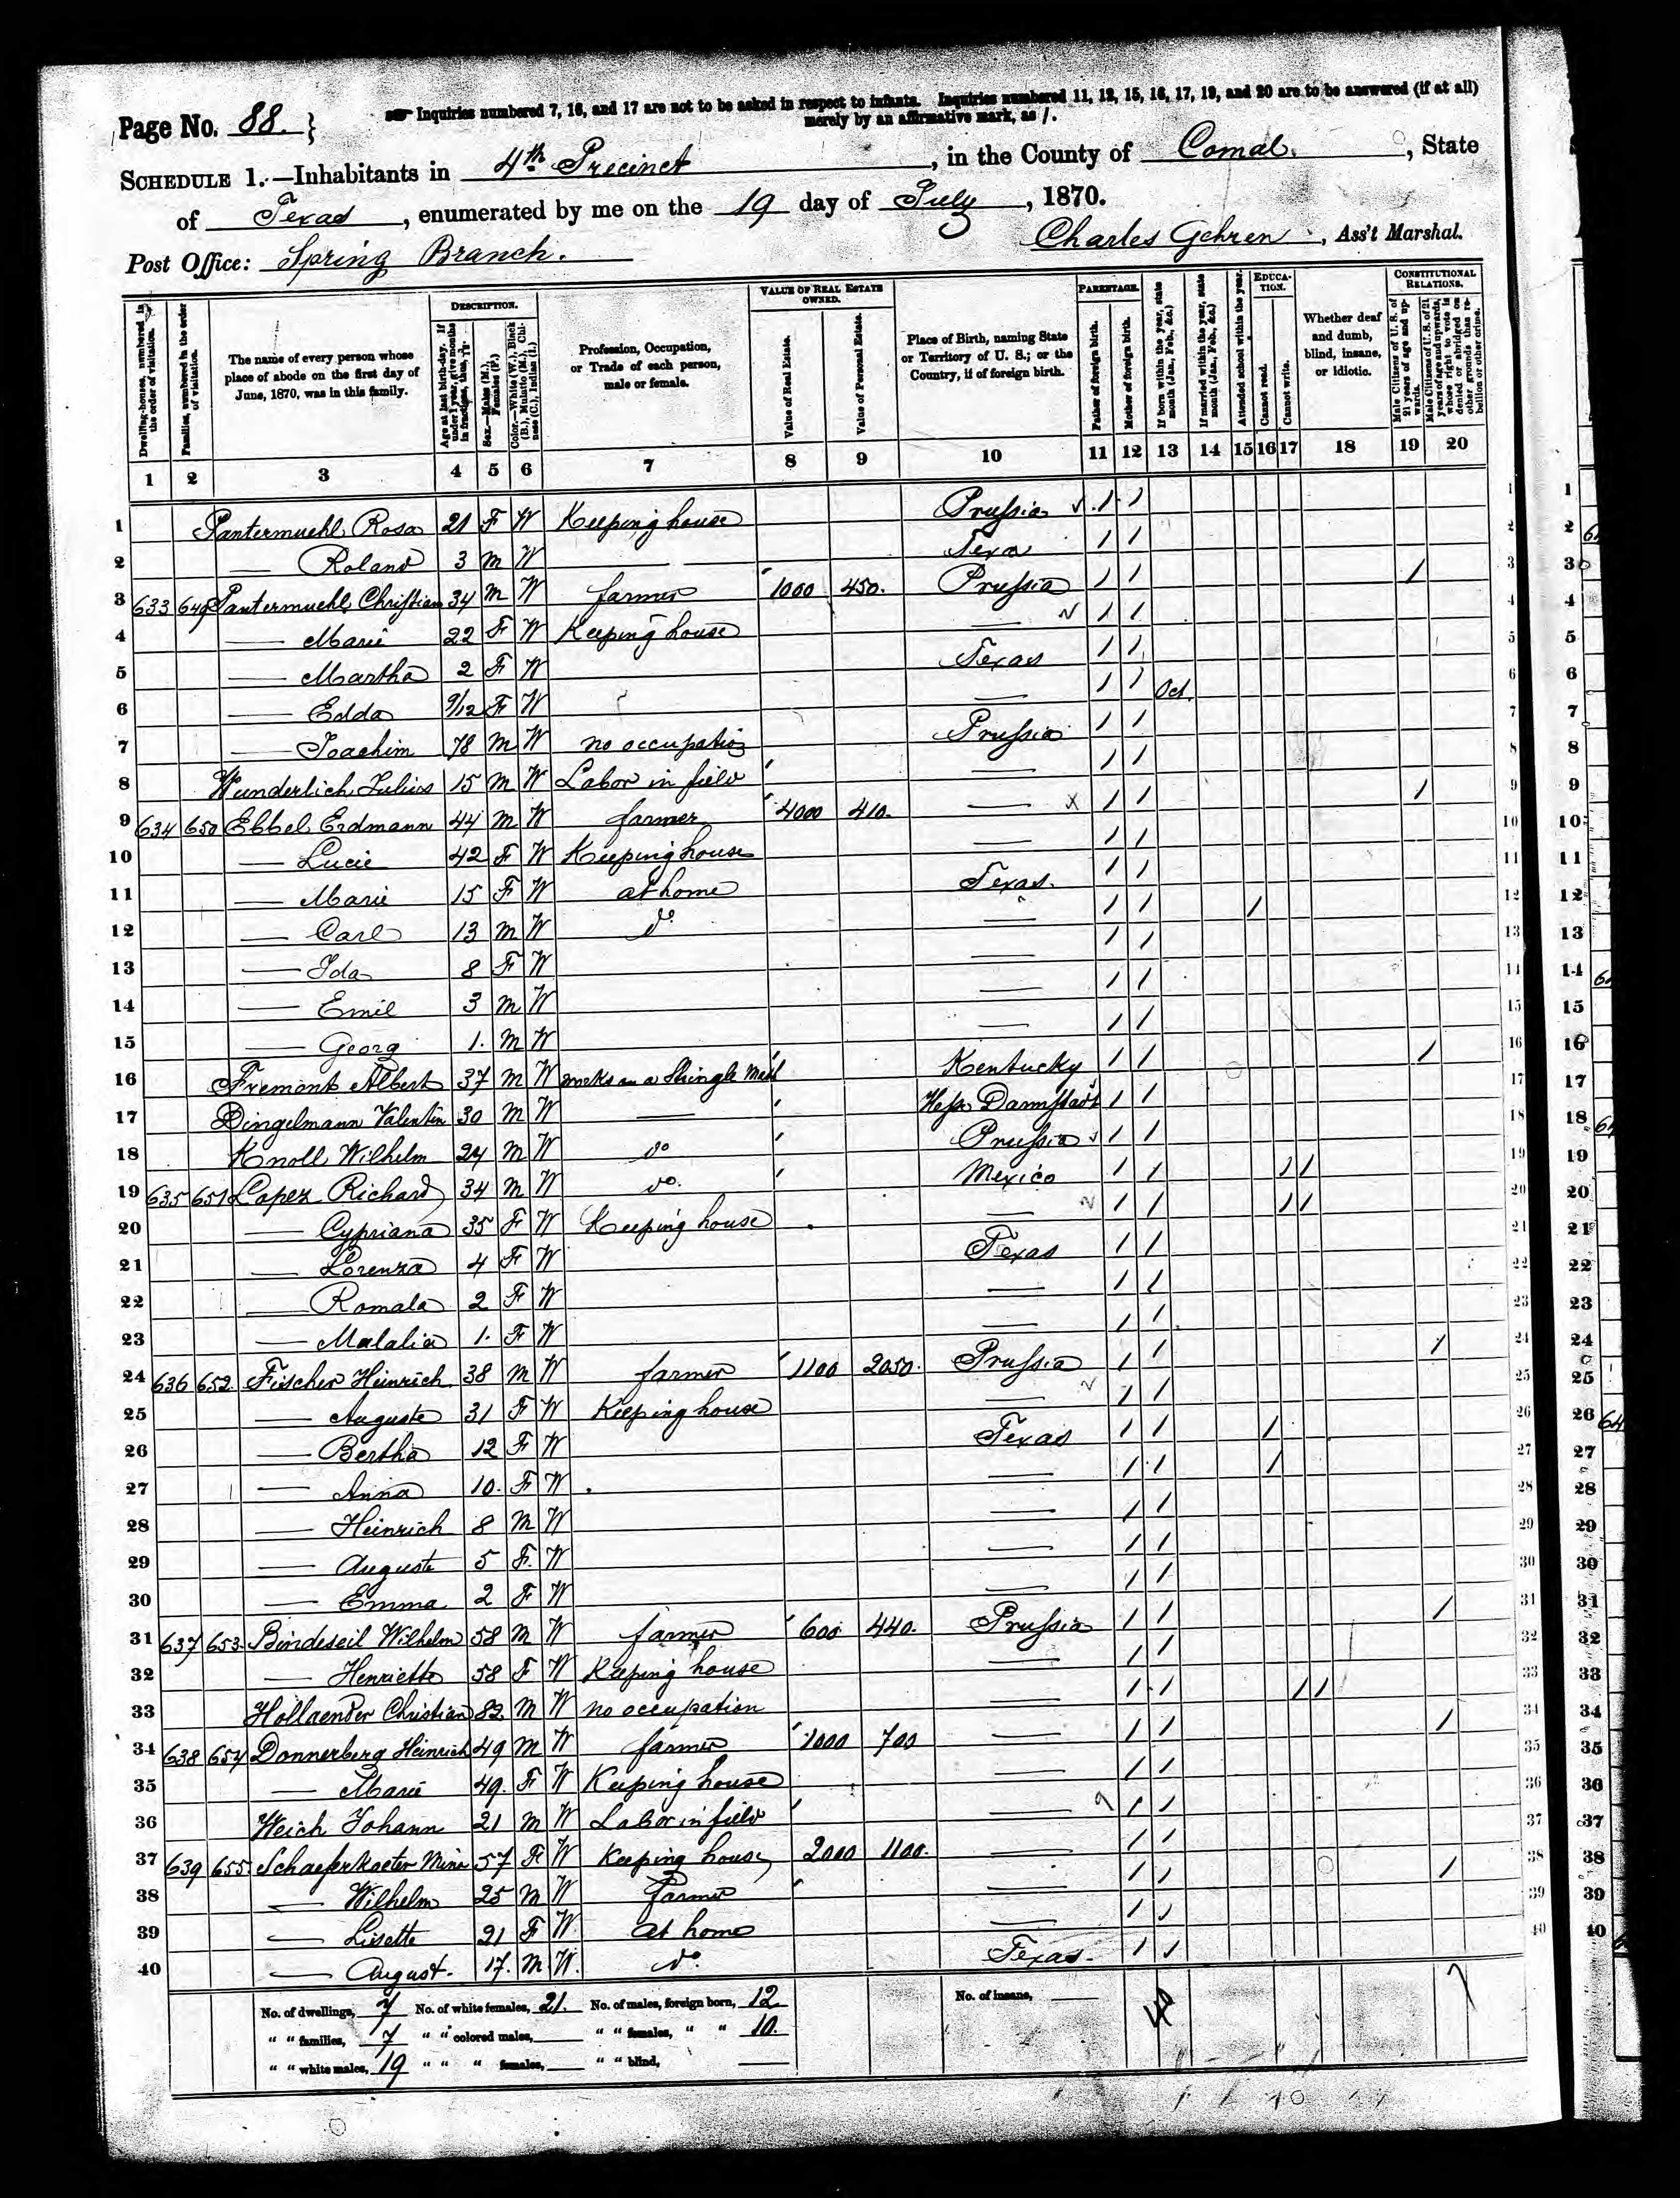 Page No. 88. } Inquiries numbered 7, 16, and 17 are not to be asked in respect to infants. Inquiries numbered 11, 12, 15, 16, 17, 19, and 20 are to be answered (if at all)
merely by an affirmative mark, as /.
SCHEDULE 1.—Inhabitants in 4th Precinct, in the County of Comal, State
of Texas, enumerated by me on the 19 day of July, 1870.
Post Office: Spring Branch. Charles Gehren, Ass't Marshal.
Dwelling-houses, numbered in the order of visitation.
Families, numbered in the order of visitation.
The name of every person whose place of abode on the first day of June, 1870, was in this family.
DESCRIPTION.
Age at last birth-day. If under 1 year, give months in fractions, thus, 3/12.
Sex.—Males (M.), Females (F.)
Color.—White (W.), Black (B.), Mulatto (M.), Chinese (C.), Indian (I.)
Profession, Occupation, or Trade of each person, male or female.
VALUE OF REAL ESTATE OWNED.
Value of Real Estate.
Value of Personal Estate.
Place of Birth, naming State or Territory of U. S.; or the Country, if of foreign birth.
PARENTAGE.
Father of foreign birth.
Mother of foreign birth.
If born within the year, state month (Jan., Feb., &c.)
If married within the year, state month (Jan., Feb., &c.)
Attended school within the year.
EDUCATION.
Cannot read.
Cannot write.
Whether deaf and dumb, blind, insane, or idiotic.
CONSTITUTIONAL RELATIONS.
Male Citizens of U. S. of 21 years of age and upwards.
Male Citizens of U. S. of 21 years of age and upwards, whose right to vote is denied or abridged on other grounds than rebellion or other crime.
1 2 3 4 5 6 7 8 9 10 11 12 13 14 15 16 17 18 19 20
1 Pantermuehl Rosa 21 F W Keeping house Prussia / / 1
2 — Roland 3 M W — Texa / / 2
3 633 649 Pantermuehl Christian 34 M W farmer 1000 450. Prussia / / / 3
4 — Marie 22 F W Keeping house — / / 4
5 — Martha 2 F W Texas / / 5
6 — Edda 9/12 F W — / / Oct. 6
7 — Joachim 78 M W no occupation Prussia / / 7
8 Wunderlich Julius 15 M W Labor in field — / / 8
9 634 650 Ebbel Erdmann 44 M W farmer 4000 410. — x / / / 9
10 — Lucie 42 F W Keeping house — / / 10
11 — Marie 15 F W at home Texas. / / 11
12 — Carl 13 M W do. — / / / 12
13 — Ida 8 F W — / / 13
14 — Emil 3 M W — / / 14
15 — Georg 1. M W — / / 15
16 Fremont Albert 37 M W works in a Shingle Mill Kentucky / / / 16
17 Dingelmann Valentin 30 M W — Hess. Darmstadt / / 17
18 Knoll Wilhelm 24 M W do Prussia / / 18
19 635 651 Lopez Richard 34 M W do. Mexico / / / / 19
20 — Cypriana 35 F W Keeping house — / / / / 20
21 — Lorenza 4 F W Texas / / 21
22 — Romala 2 F W — / / 22
23 — Malalia 1. F W — / / 23
24 636 652. Fischer Heinrich 38 M W farmer 1100 2050. Prussia / / / 24
25 — Auguste 31 F W Keeping house — / / 25
26 — Bertha 12 F W Texas / / / 26
27 — Anna 10. F W — / / / 27
28 — Heinrich 8 M W — / / 28
29 — Auguste 5 F. W — / / 29
30 — Emma 2 F W — / / 30
31 637 653. Bindeseil Wilhelm 58 M W farmer 600 440. Prussia / / / 31
32 — Henriette 58 F W Keeping house — / / 32
33 Hollaender Christian 82 M W no occupation — / / / / 33
34 638 654 Donnerberg Heinrich 49 M W farmer 1000 700 — / / / 34
35 — Marie 49. F W Keeping house — / / 35
36 Weich Johann 21 M W Labor in field — / / 36
37 639 655. Schaeferkoeter Mina 57 F W Keeping house 2000 1100. — / / 37
38 — Wilhelm 25 M W Farmer — / / / 38
39 — Lisette 21 F W. at home — / / 39
40 — August. 17. M W. do. Texas. / / 40
No. of dwellings, 7 No. of white females, 21. No. of males, foreign born, 12 No. of insane, —
" " families, 7 " " colored males, " " females, " " 10.
" " white males, 19 " " " females, " " blind,